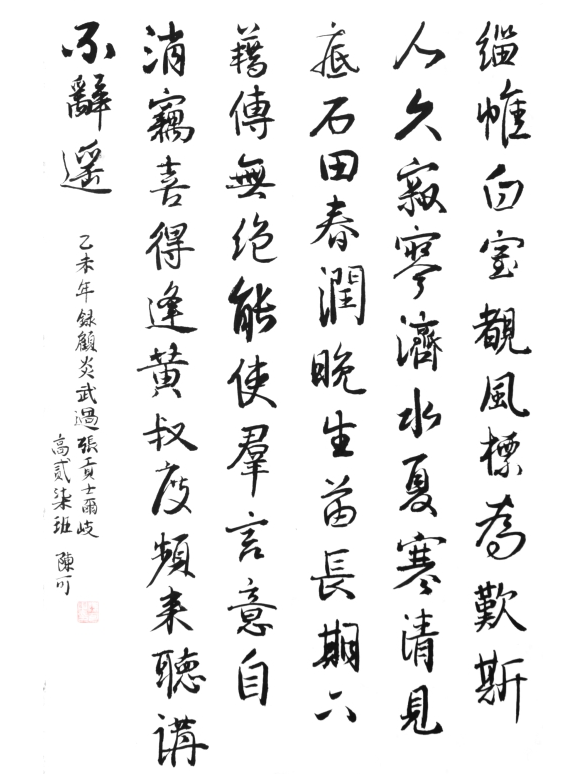 緇帷白室覩風標為歎斯
人久寂寥濟水夏寒清見
底石田春潤晚生苗長期六
藉傳無絕能使羣言意自
消竊喜得逢黃叔度頻来聽講
不辭遥
乙未年録顧炎武過張貢士爾岐
高貳柒班 陳可